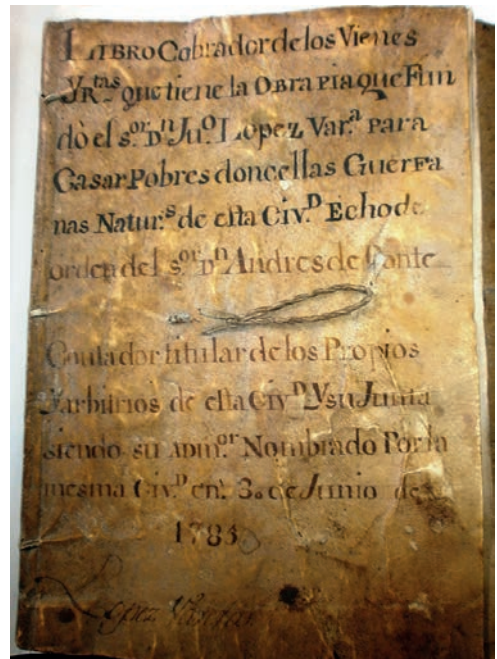 LIBRO Cobrador de los Vienes
YR.tas que tiene la OBRA PIA que Fun
dò el s.or D.n Ju.o Lopez Var.a PARA
Casar Pobres doncellas Guerfa
nas Natur.s de esta Civ.D Echo de
orden del s.or D.n Andres de Conte
Contador titular de los Propios
Yarbitrios de esta Civ.D Y su Junta
siendo su ADM.or Nombrado Por la
mesma Civ.D en 30 de Junio de
1783
Lopez